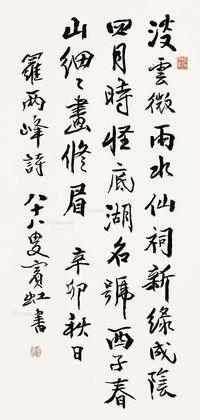 淡雲微雨水仙祠新綠成陰
四月時怪底湖名號西子春
山細々畫修眉 辛卯秋日
羅兩峰詩 八十八叟賓虹書